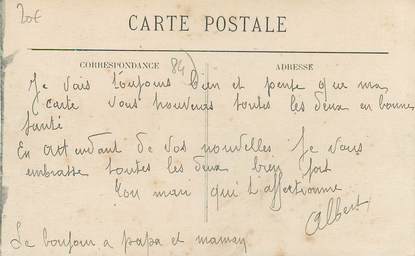 20€
CARTE POSTALE
CORRESPONDANCE
84)
ADRESSE
Je vais toujours bien et pense que ma
carte vous trouvera toutes les deux en bonne
santé
En attendant de vos nouvelles Je vous
embrasse toutes les deux bien fort
Ton mari qui t'affectionne
Albert
Le bonjour a papa et maman